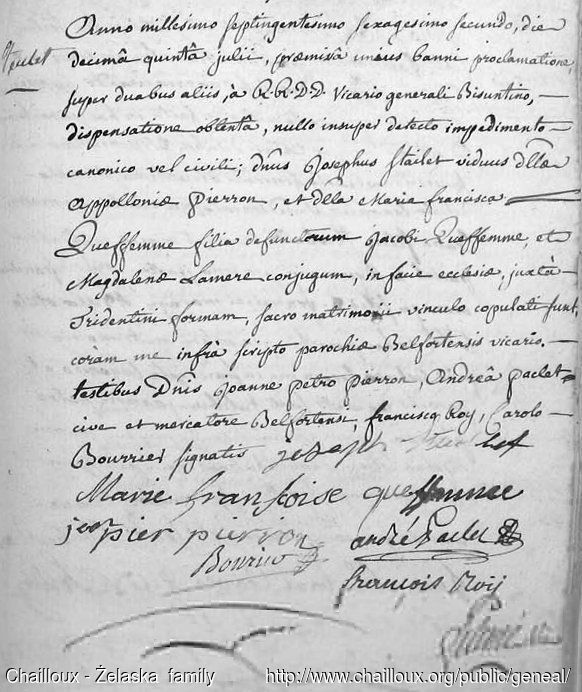 Anno millesimo septingentesimo sexagesimo secundo, die
decimâ quintâ julii, præmissâ unius banni proclamatione,
super duabus aliis, à R.R. D.D. Vicario generali Bisuntino, —
dispensatione obtentâ, nullo insuper detecto impedimento —
canonico vel civili; dnus Josephus Stailet viduus dllæ
Appolloniæ Pierron, et dlla Maria francisca
Queffemme filia defunctorum Jacobi Queffemme, et
Magdalenæ Lamere conjugum, in facie ecclesiæ, juxtà
Tridentini formam, sacro matrimonii vinculo copulati sunt,
coràm me infrà scripto parochiæ Belfortensis vicario, —
testibus Dnis Joanne petro Pierron, Andreâ paclet
cive et mercatore Belfortensi, francisco Roy, Carolo —
Bourrier signatis
joseph
Marie franſoise queffemme
jean pier pierron
andré Paclet
Bourrier
françois Roy
Chailloux - Żelaska family
http://www.chailloux.org/public/geneal/